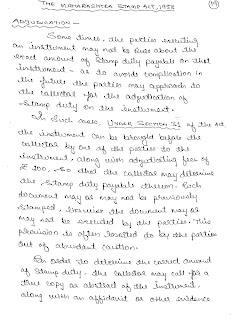 THE MAHARASHTRA STAMP ACT, 1958
ADJUDICATION -
Some times, the parties executing
an instrument may not be sure about the
exact amount of stamp duty payable on that
instrument - so to avoids complication in
the future the parties may approach to
the collector for the adjudication of
stamp duty on the instrument.
In such case, UNDER SECTION 31 of the Act
the instrument can be brought before the
collector by one of the parties to the
instrument, along with adjudicating fees of
₹ 100, so that the collector may determine
the stamp duty payable thereon. Such
document may or may not be previously
stamped, likewise the document may or
may not be executed by the parties. This
provision is often resorted to by the parties
out of abundant caution.
In order to determine the correct amount
of stamp duty, the collector may call for a
true copy or abstract of the instrument,
along with an affidavit or other evidence